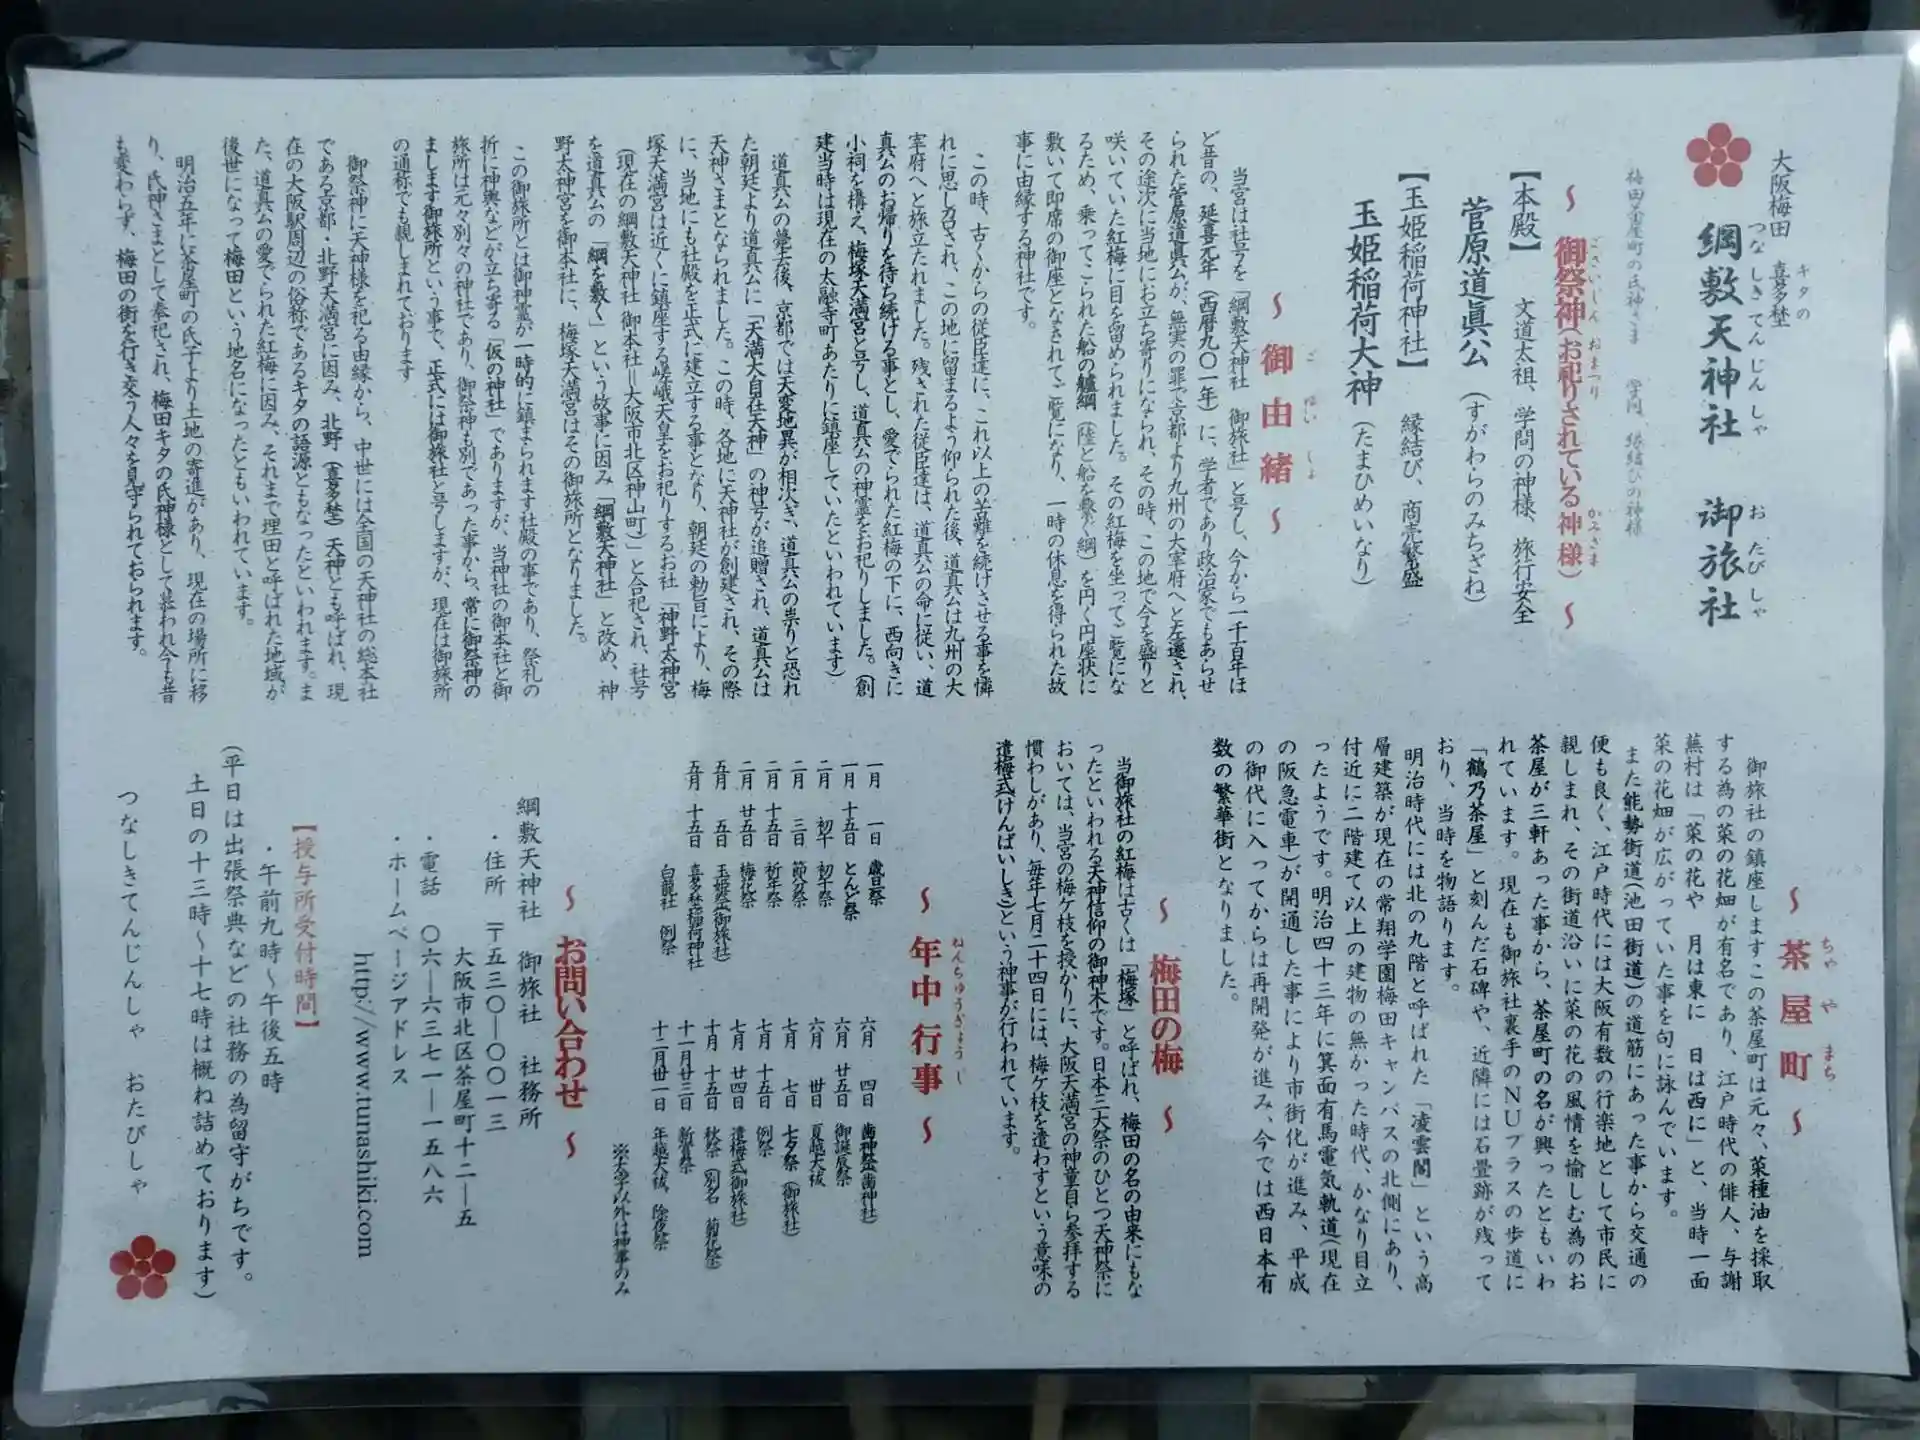 大阪梅田 喜多埜
キタの
綱敷天神社 御旅社
つなしきてんじんしゃ おたびしゃ
梅田茶屋町の氏神さま 学問、縁結びの神様
～ 御祭神(お祀りされている神様) ～
ごさいじん おまつり かみさま
【本殿】 文道太祖、学問の神様、旅行安全
菅原道眞公 (すがわらのみちざね)
【玉姫稲荷神社】 縁結び、商売繁盛
玉姫稲荷大神 (たまひめいなり)
～ 御由緒 ～
ご ゆい しょ
当宮は社号を「綱敷天神社 御旅社」と号し、今から一千百年ほ
ど昔の、延喜元年(西暦九〇一年)に、学者であり政治家でもあらせ
られた菅原道眞公が、無実の罪で京都より九州の大宰府へと左遷され、
その途次に当地にお立ち寄りになられ、その時、この地で今を盛りと
咲いていた紅梅に目を留められました。その紅梅を坐ってご覧にな
るため、乗ってこられた船の艫綱(陸と船を繋ぐ綱)を円く円座状に
敷いて即席の御座となされてご覧になり、一時の休息を得られた故
事に由縁する神社です。
この時、古くからの従臣達に、これ以上の苦難を続けさせる事を憐
れに思し召され、この地に留まるよう仰られた後、道真公は九州の大
宰府へと旅立たれました。残された従臣達は、道真公の命に従い、道
真公のお帰りを待ち続ける事とし、愛でられた紅梅の下に、西向きに
小祠を構え、梅塚天満宮と号し、道真公の神霊をお祀りしました。(創
建当時は現在の太融寺町あたりに鎮座していたといわれています)
道真公の薨去後、京都では天変地異が相次ぎ、道真公の祟りと恐れ
た朝廷より道真公に「天満大自在天神」の神号が追贈され、道真公は
天神さまとなられました。この時、各地に天神社が創建され、その際
に、当地にも社殿を正式に建立する事となり、朝廷の勅旨により、梅
塚天満宮は近くに鎮座する嵯峨天皇をお祀りするお社「神野太神宮
(現在の綱敷天神社 御本社＝大阪市北区神山町)」と合祀され、社号
を道真公の「綱を敷く」という故事に因み「綱敷天神社」と改め、神
野太神宮を御本社に、梅塚天満宮はその御旅所となりました。
この御旅所とは御神霊が一時的に鎮まられます社殿の事であり、祭礼の
折に神輿などが立ち寄る「仮の神社」でありますが、当神社の御本社と御
旅所は元々別々の神社であり、御祭神も別であった事から、常に御祭神の
まします御旅所という事で、正式には御旅社と号しますが、現在は御旅所
の通称でも親しまれております
御祭神に天神様を祀る由縁から、中世には全国の天神社の総本社
である京都・北野天満宮に因み、北野(喜多埜)天神とも呼ばれ、現
在の大阪駅周辺の俗称であるキタの語源ともなったといわれます。ま
た、道真公の愛でられた紅梅に因み、それまで埋田と呼ばれた地域が
後世になって梅田という地名になったともいわれています。
明治五年に茶屋町の氏子より土地の寄進があり、現在の場所に移
り、氏神さまとして奉祀され、梅田キタの氏神様として慕われ今も昔
も変わらず、梅田の街を行き交う人々を見守られておられます。
～ 茶屋町 ～
ちゃ や まち
御旅社の鎮座しますこの茶屋町は元々、菜種油を採取
する為の菜の花畑が有名であり、江戸時代の俳人、与謝
蕪村は「菜の花や 月は東に 日は西に」と、当時一面
菜の花畑が広がっていた事を句に詠んでいます。
また能勢街道(池田街道)の道筋にあった事から交通の
便も良く、江戸時代には大阪有数の行楽地として市民に
親しまれ、その街道沿いに菜の花の風情を愉しむ為のお
茶屋が三軒あった事から、茶屋町の名が興ったともいわ
れています。現在も御旅社裏手のＮＵプラスの歩道に
「鶴乃茶屋」と刻んだ石碑や、近隣には石畳跡が残って
おり、当時を物語ります。
明治時代には北の九階と呼ばれた「凌雲閣」という高
層建築が現在の常翔学園梅田キャンパスの北側にあり、
付近に二階建て以上の建物の無かった時代、かなり目立
ったようです。明治四十三年に箕面有馬電気軌道(現在
の阪急電車)が開通した事により市街化が進み、平成
の御代に入ってからは再開発が進み、今では西日本有
数の繁華街となりました。
～ 梅田の梅 ～
当御旅社の紅梅は古くは「梅塚」と呼ばれ、梅田の名の由来にもな
ったといわれる天神信仰の御神木です。日本三大祭のひとつ天神祭に
おいては、当宮の梅ケ枝を授かりに、大阪天満宮の神童自ら参拝する
慣わしがあり、毎年七月二十四日には、梅ケ枝を遣わすという意味の
遣梅式(けんばいしき)という神事が行われています。
～ 年中行事 ～
ねんちゅうぎょうじ
一月 一日 歳旦祭
一月 十五日 とんど祭
二月 初午 初午祭
二月 三日 節分祭
二月 十五日 祈年祭
二月 廿五日 梅花祭
五月 五日 玉姫祭(御旅社)
五月 十五日 喜多埜稲荷神社
白龍社 例祭
六月 四日 歯神祭(歯神社)
六月 廿五日 御誕辰祭
六月 卅日 夏越大祓
七月 七日 七夕祭(御旅社)
七月 十五日 例祭
七月 廿四日 遣梅式(御旅社)
十月 十五日 秋祭(別名 菊花祭)
十一月廿三日 新嘗祭
十二月卅一日 年越大祓、除夜祭
※太字以外は神事のみ
～ お問い合わせ ～
綱敷天神社 御旅社 社務所
・住所 〒五三〇―〇〇一三
大阪市北区茶屋町十二―五
・電話 〇六―六三七一―一五八六
・ホームページアドレス
http://www.tunashiki.com
【授与所受付時間】
・午前九時～午後五時
(平日は出張祭典などの社務の為留守がちです。
土日の十三時～十七時は概ね詰めております)
つなしきてんじんしゃ おたびしゃ